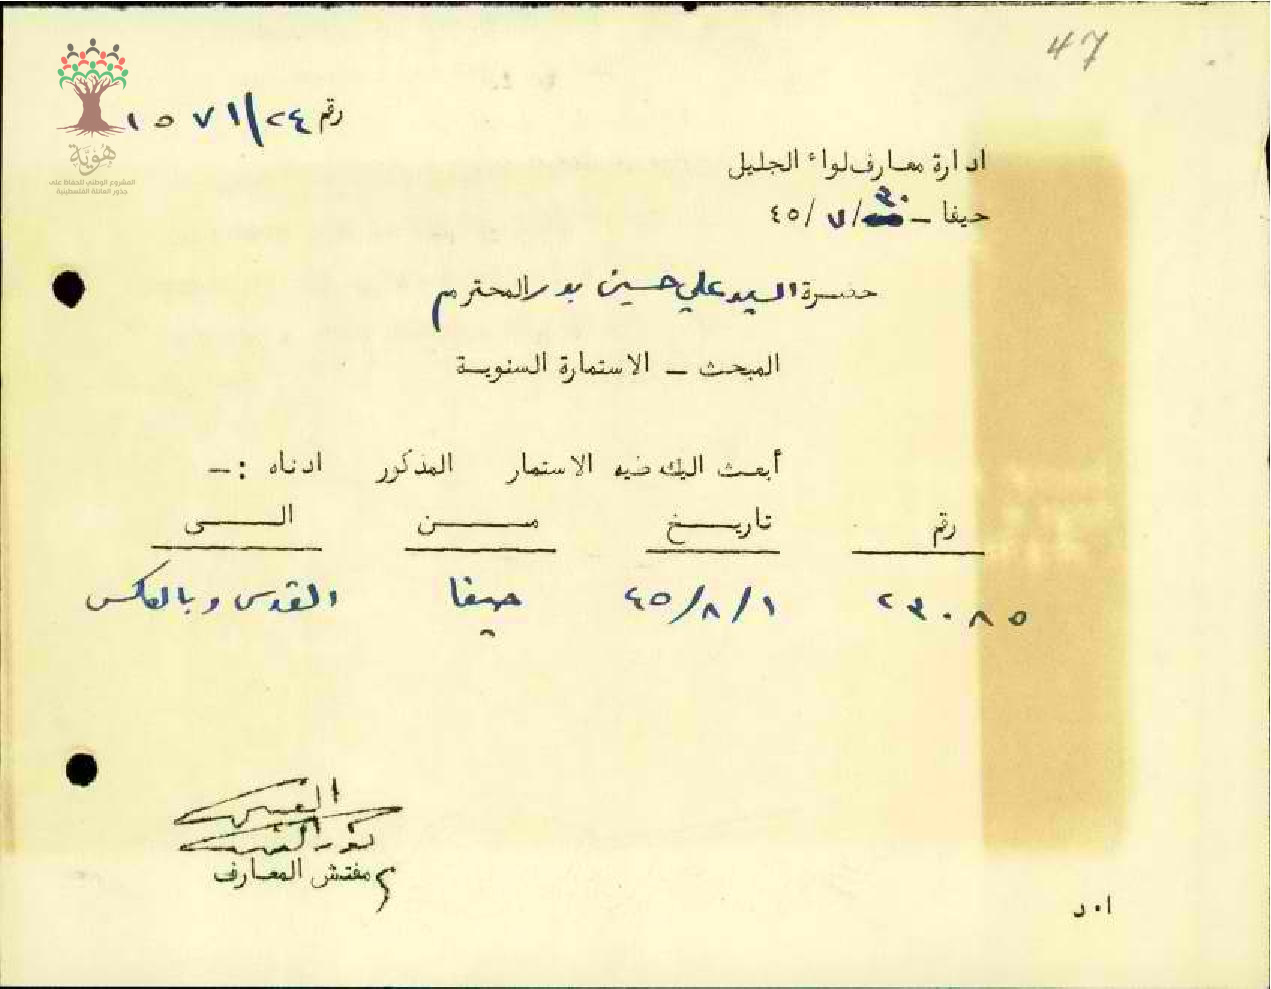 47
هوية
المشروع الوطني للحفاظ على
جذور العائلة الفلسطينية
رقم ٢٤/١٥٧١
ادارة معارف لواء الجليل
حيفا - ٣٠/٧/٤٥
حضرة السيد علي حسين بدر المحترم
المبحث - الاستمارة السنوية
أبعث اليك طيه الاستمار المذكور ادناه :-
رقم تاريخ من الى
٢٣٠٨٥ ١/٨/٤٥ حيفا القدس وبالعكس
مفتش المعارف
ا.د